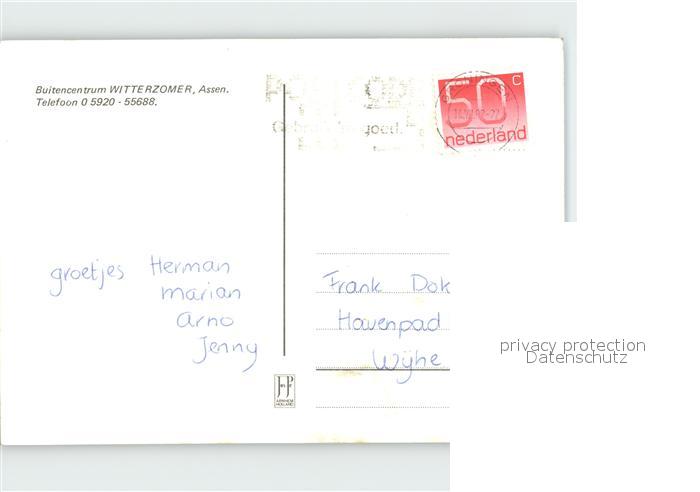 Buitencentrum WITTERZOMER, Assen.
Telefoon 0 5920 - 55688.
50 c
nederland
groetjes Herman
marian
Arno
Jenny
Frank Dok
Havenpad
Wijhe
JHP
ARNHEM
HOLLAND
privacy protection
Datenschutz